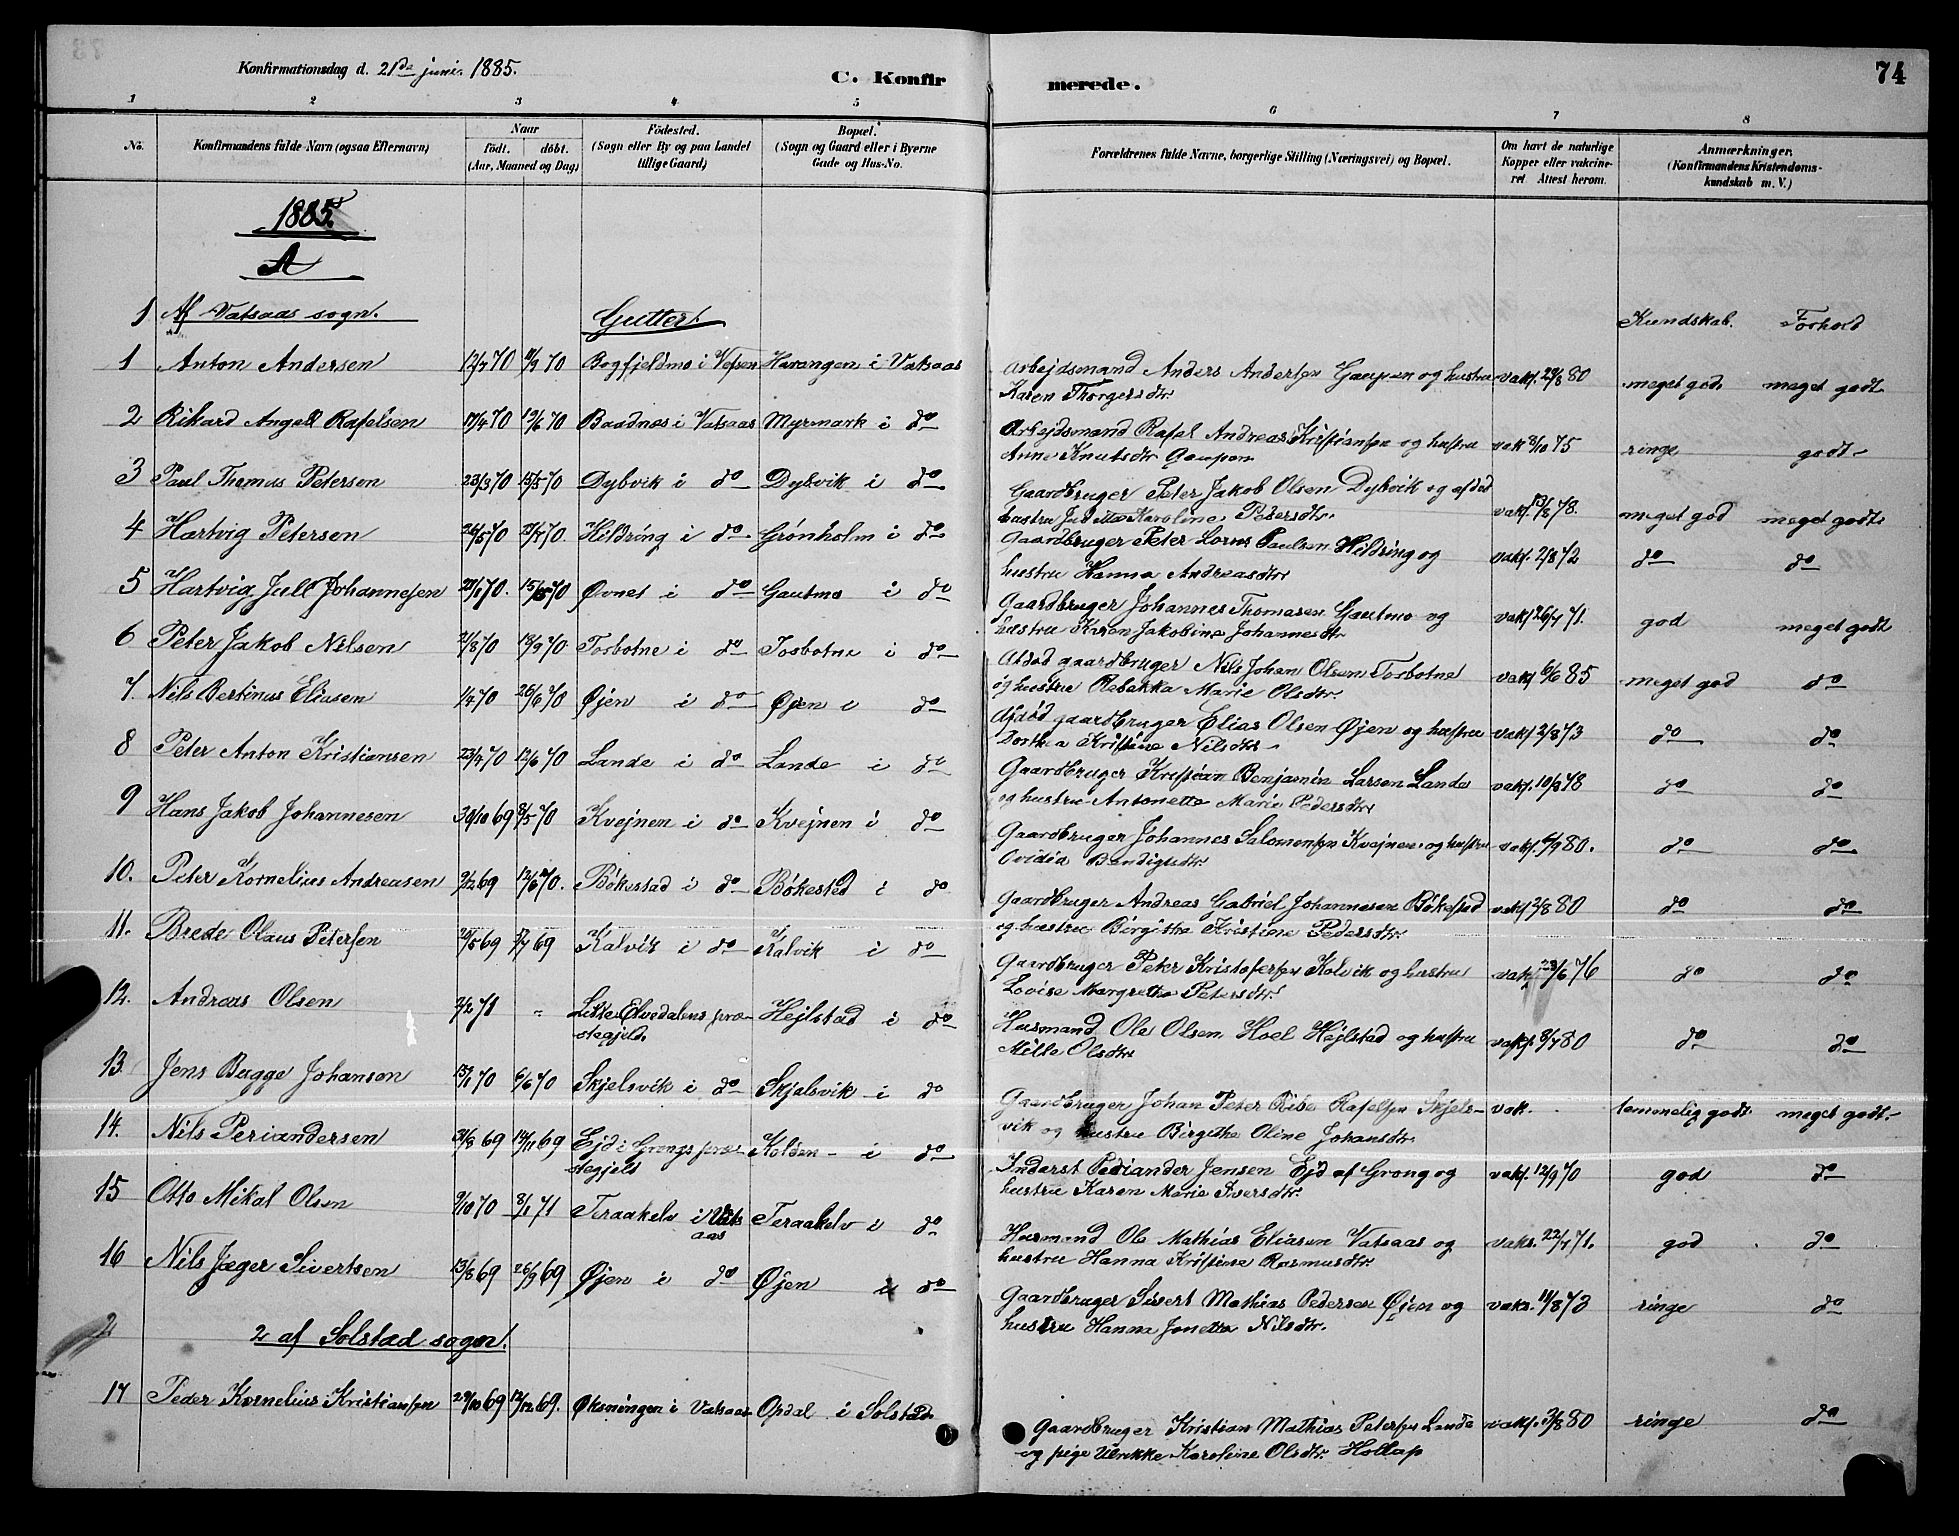 Konfirmationsdag d. 21de juni. 1885.
C. Konfirmerede.
74
1 2 3 4 5 6 7 8
No.
Konfirmandens fulde Navn (ogsaa Efternavn)
Naar
født. døbt.
(Aar, Maaned og Dag)
Fødested.
(Sogn eller By og paa Landet
tillige Gaard)
Bopæl.
(Sogn og Gaard eller i Byerne
Gade og Hus-No.
Forældrenes fulde Navne, borgerlige Stilling (Næringsvei) og Bopæl.
Om havt de naturlige
Kopper eller vakcine-
ret Attest herom.
Anmærkninger.
(Konfirmandens Kristendoms-
kundskab m. V.)
1885.
A
1 Af Vatsaas sogn. Gutter. Kundskab. Forhold
1 Anton Andersen 12/7 70 11/9 70 Bogfjeldmo i Vefsen Harangen i Vatsaas Arbejdsmand Anders Andersen Gaupen og hustru vakc. 29/8 80 meget god meget godt
Karen Thorgersdtr
2 Rikard Angell Rafelsen 17/4 70 19/6 70 Baadnes i Vatsaas Myrmark i do Arbejdsmand Rafel Andreas Kristiansen og hustru vak 8/10 75 ringe godt
Anne Knutsdtr Gaupen
3 Paul Thomas Petersen 23/3 70 15/5 70 Dybvik i do Dybvik i do Gaardbruger Peter Jakob Olsen Dybvik og afdød vakc. 13/8 78. meget god meget godt
hustru Karoline Petersdtr.
4 Hartvig Petersen 26/5 70 Hildring i do Grønholm i do Gaardbruger Peter Lorns Paulsen Hildring og vakc. 2/8 72 do do
hustru Hanna Andreasdtr
5 Hartvig Jull Johannesen 15/5 70 Øvnet i do Gautmo i do Gaardbruger Johannes Thomasen Gautmo og vakc 26/7 71. god meget godt
hustru Karen Jakobine Johannesdtr
6 Peter Jakob Nilsen 21/8 70 18/9 70 Tosbotne i do Tosbotne i do Afdød gaardbruger Nils Johan Olsen Tosbotne vakc 6/6 85 meget god do
og hustru Rebekka Marie Olsdtr.
7. Nils Bertinus Eliasen 1/4 70 26/6 70 Øjen i do Øjen i do Afdød gaardbruger Elias Olsen Øjen og hustru vakc 2/8 73 do do
Dorthea Kristine Nilsdtr
8 Peter Anton Kristiansen 23/4 70 12/6 70 Lande i do Lande i do Gaardbruger Kristian Benjamin Larsen Lande vakc. 10/9 78 do do
og hustru Antonette Marie Pedersdtr
9 Hans Jakob Johannesen 30/10 69 8/5 70 Kvejnen i do Kvejnen i do Gaardbruger Johannes Salomonsen Kvejnen og hustru vakc. 6/9 80. do do
Ovidia Bendigtsdtr
10. Peter Kornelius Andreasen 9/12 69 12/6 70. Bøkestad i do Bøkested i do Gaardbruger Andreas Gabriel Johannesen Bøkestad vakc 2/8 80 do do
og hustru Birgitha Kristine Pedersdtr.
11. Brede Olaus Petersen 20/5 69 69 Kalvik i do Kalvik i do Gaardbruger Peter Kristofersen Kalvik og hustru vakc. 23/6 76 do do
Lovise Margrethe Petersdtr.
12. Andreas Olsen 2/2 71 " Lille Elvedalens præ- Hejlstad i do Husmand Ole Olsen Hoel Hejlstad og hustru vakc. 8/7 80 do do
stegjeld. Mille Olsdtr
13. Jens Bugge Johansen 13/1 70 6/6 70 Skjelsvik i do Skjelsvik i do Gaardbruger Johan Peter Ribe Rafelsen Skjels- vak. temmelig godt meget godt.
vik og hustru Birgithe Oline Johansdtr.
14. Nils Periandersen 31/8 69 14/11 69 Ejd i Grongs præ- Kolden i do Inderst Periander Jensen Ejd af Grong og vakc. 12/9 70 god do
stegjeld hustru Karen Marie Iversdtr.
15 Otto Mikal Olsen 9/10 70 8/1 71 Teraakelv i Vats- Teraakelv i do Husmand Ole Mathias Eliasen Vatsaas og vakc. 22/7 71. god do
aas hustru Hanna Kristine Rasmusdtr.
16 Nils Jæger Sivertsen 13/8 69 26/9 69 Øjen i do Øjen i do Gaardbruger Sivert Mathias Pedersen Øjen og vakc. 11/8 73 ringe do
hustru Hanna Jonetta Nilsdtr.
2 2 af Solstad sogn.
17 Peder Kornelius Kristiansen 29/10 69 12/12 69. Øksningen i Vatsaas Opdal i Solstad Gaardbruger Kristian Mathias Petersen Lande vakc. 3/8 80 ringe do
og pige Ulrikke Karoline Olsdtr. Hollap